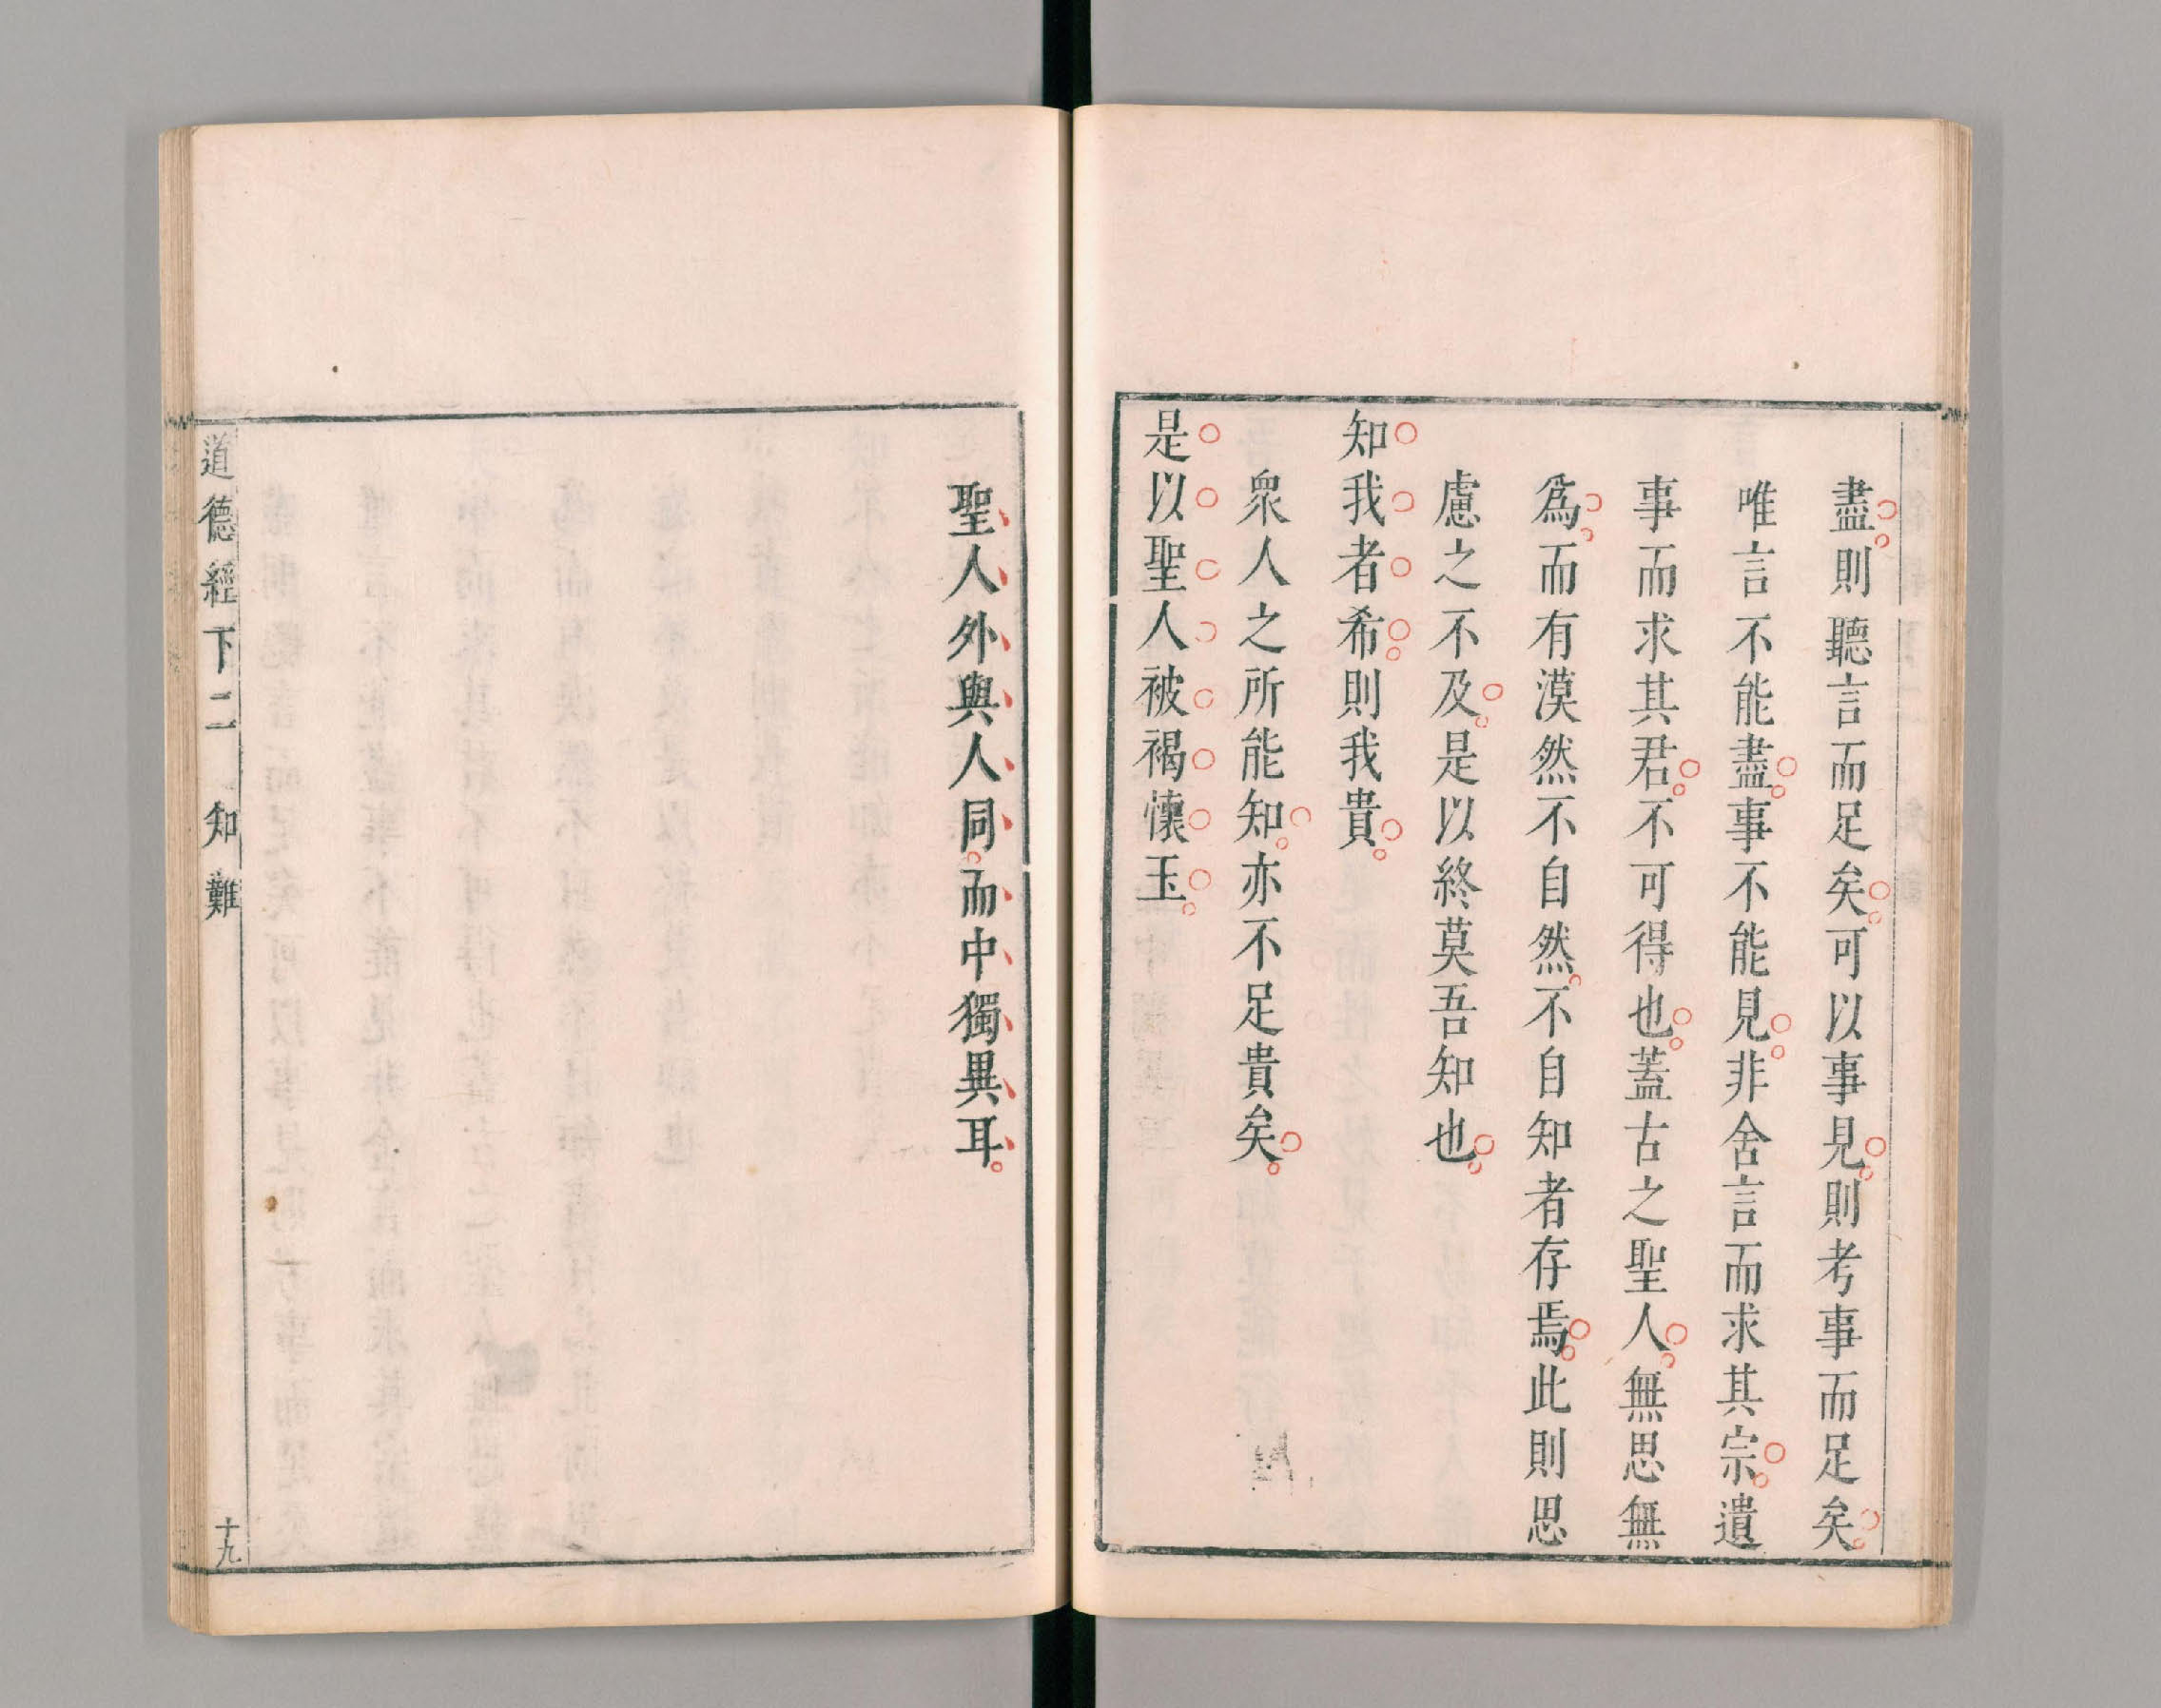 盡則聽言而足矣可以事見則考事而足矣
唯言不能盡事不能見非舍言而求其宗遺
事而求其君不可得也蓋古之聖人無思無
爲而有漠然不自然不自知者存焉此則思
慮之不及是以終莫吾知也
知我者希則我貴
衆人之所能知亦不足貴矣
是以聖人被褐懷玉
聖人外與人同而中獨異耳
道德經下二 知難 十九